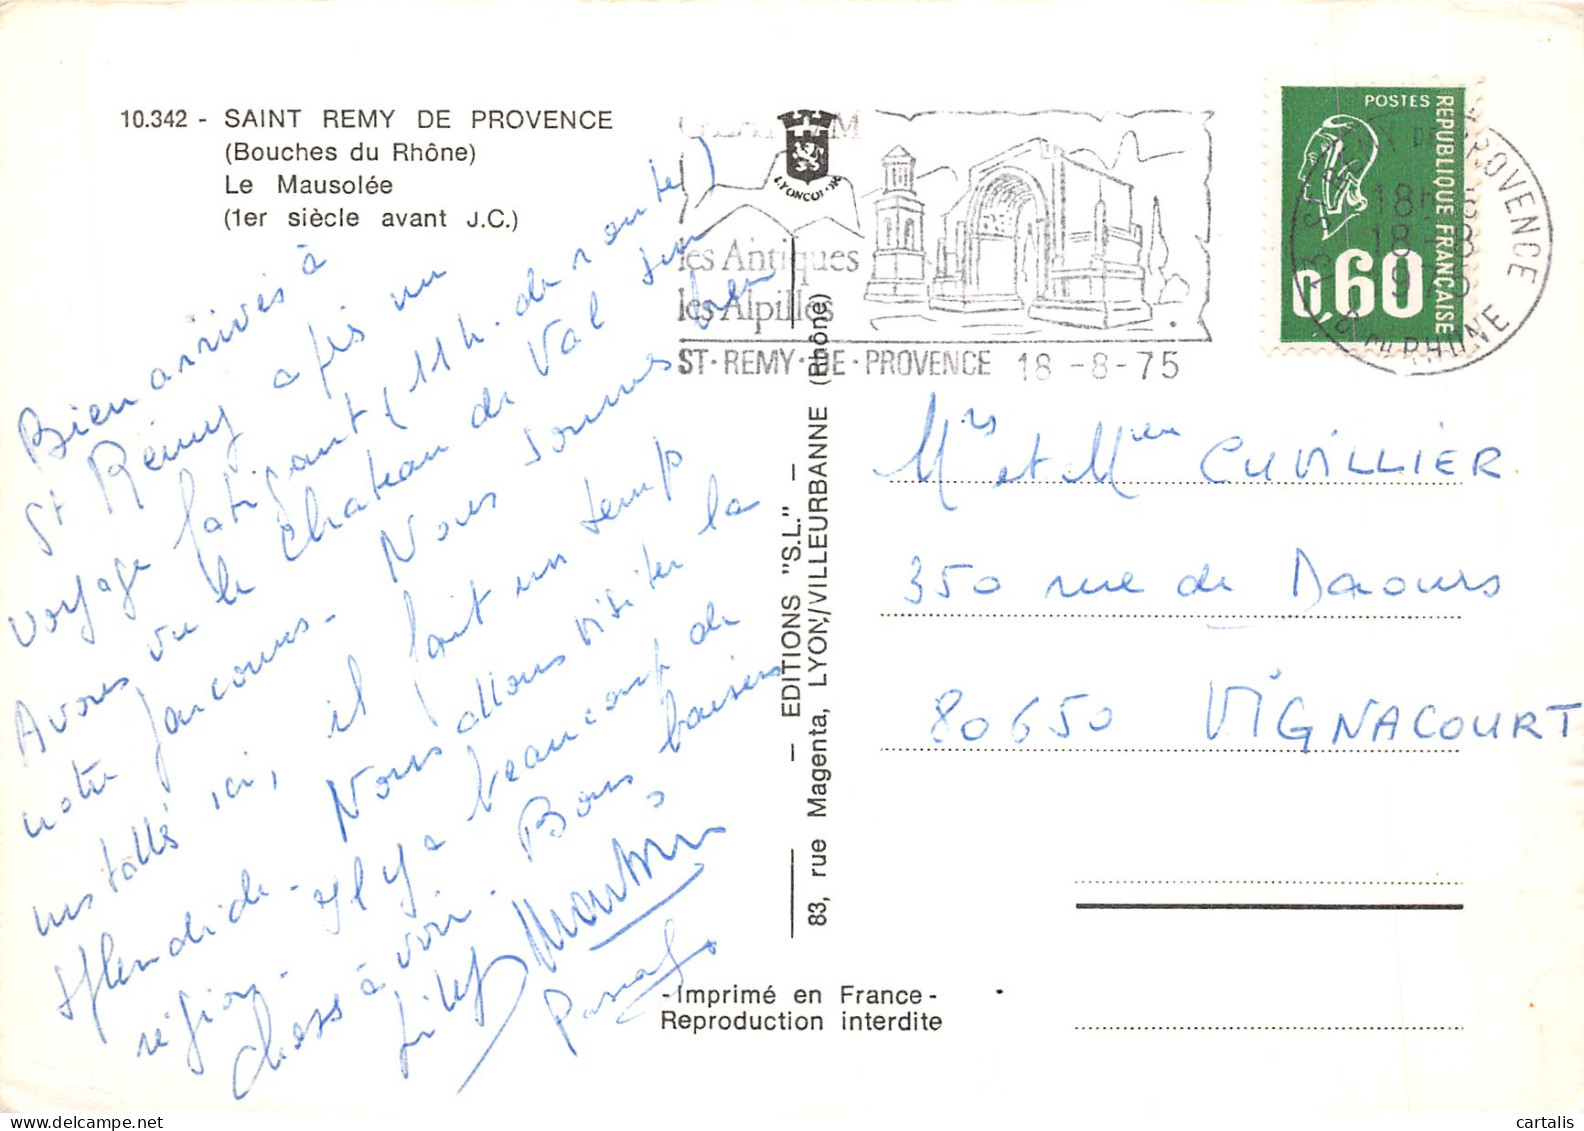 10.342 - SAINT REMY DE PROVENCE
(Bouches du Rhône)
Le Mausolée
(1er siècle avant J.C.)
Bien arrivés à
St Rémy après un
voyage fatigant (11h. de route)
Avons vu le chateau de Val sur
notre parcours. Nous sommes bien
installés ici, il fait un temps
splendide. Nous allons visiter la
région. Il y a beaucoup de
choses à voir. Bons baisers
Pascal
LYONCOL
GLANVM
les Antiques
les Alpilles
ST·REMY·DE·PROVENCE 18-8-75
POSTES
REPUBLIQUE FRANÇAISE
0,60
13 ST REMY DE PROVENCE
18h
18-8
B. DU RHONE
EDITIONS "S.L." -
83, rue Magenta, LYON/VILLEURBANNE (Rhône)
Mrs et Mme CUVILLIER
350 rue de Daours
80650 VIGNACOURT
-Imprimé en France-
Reproduction interdite
cartalis